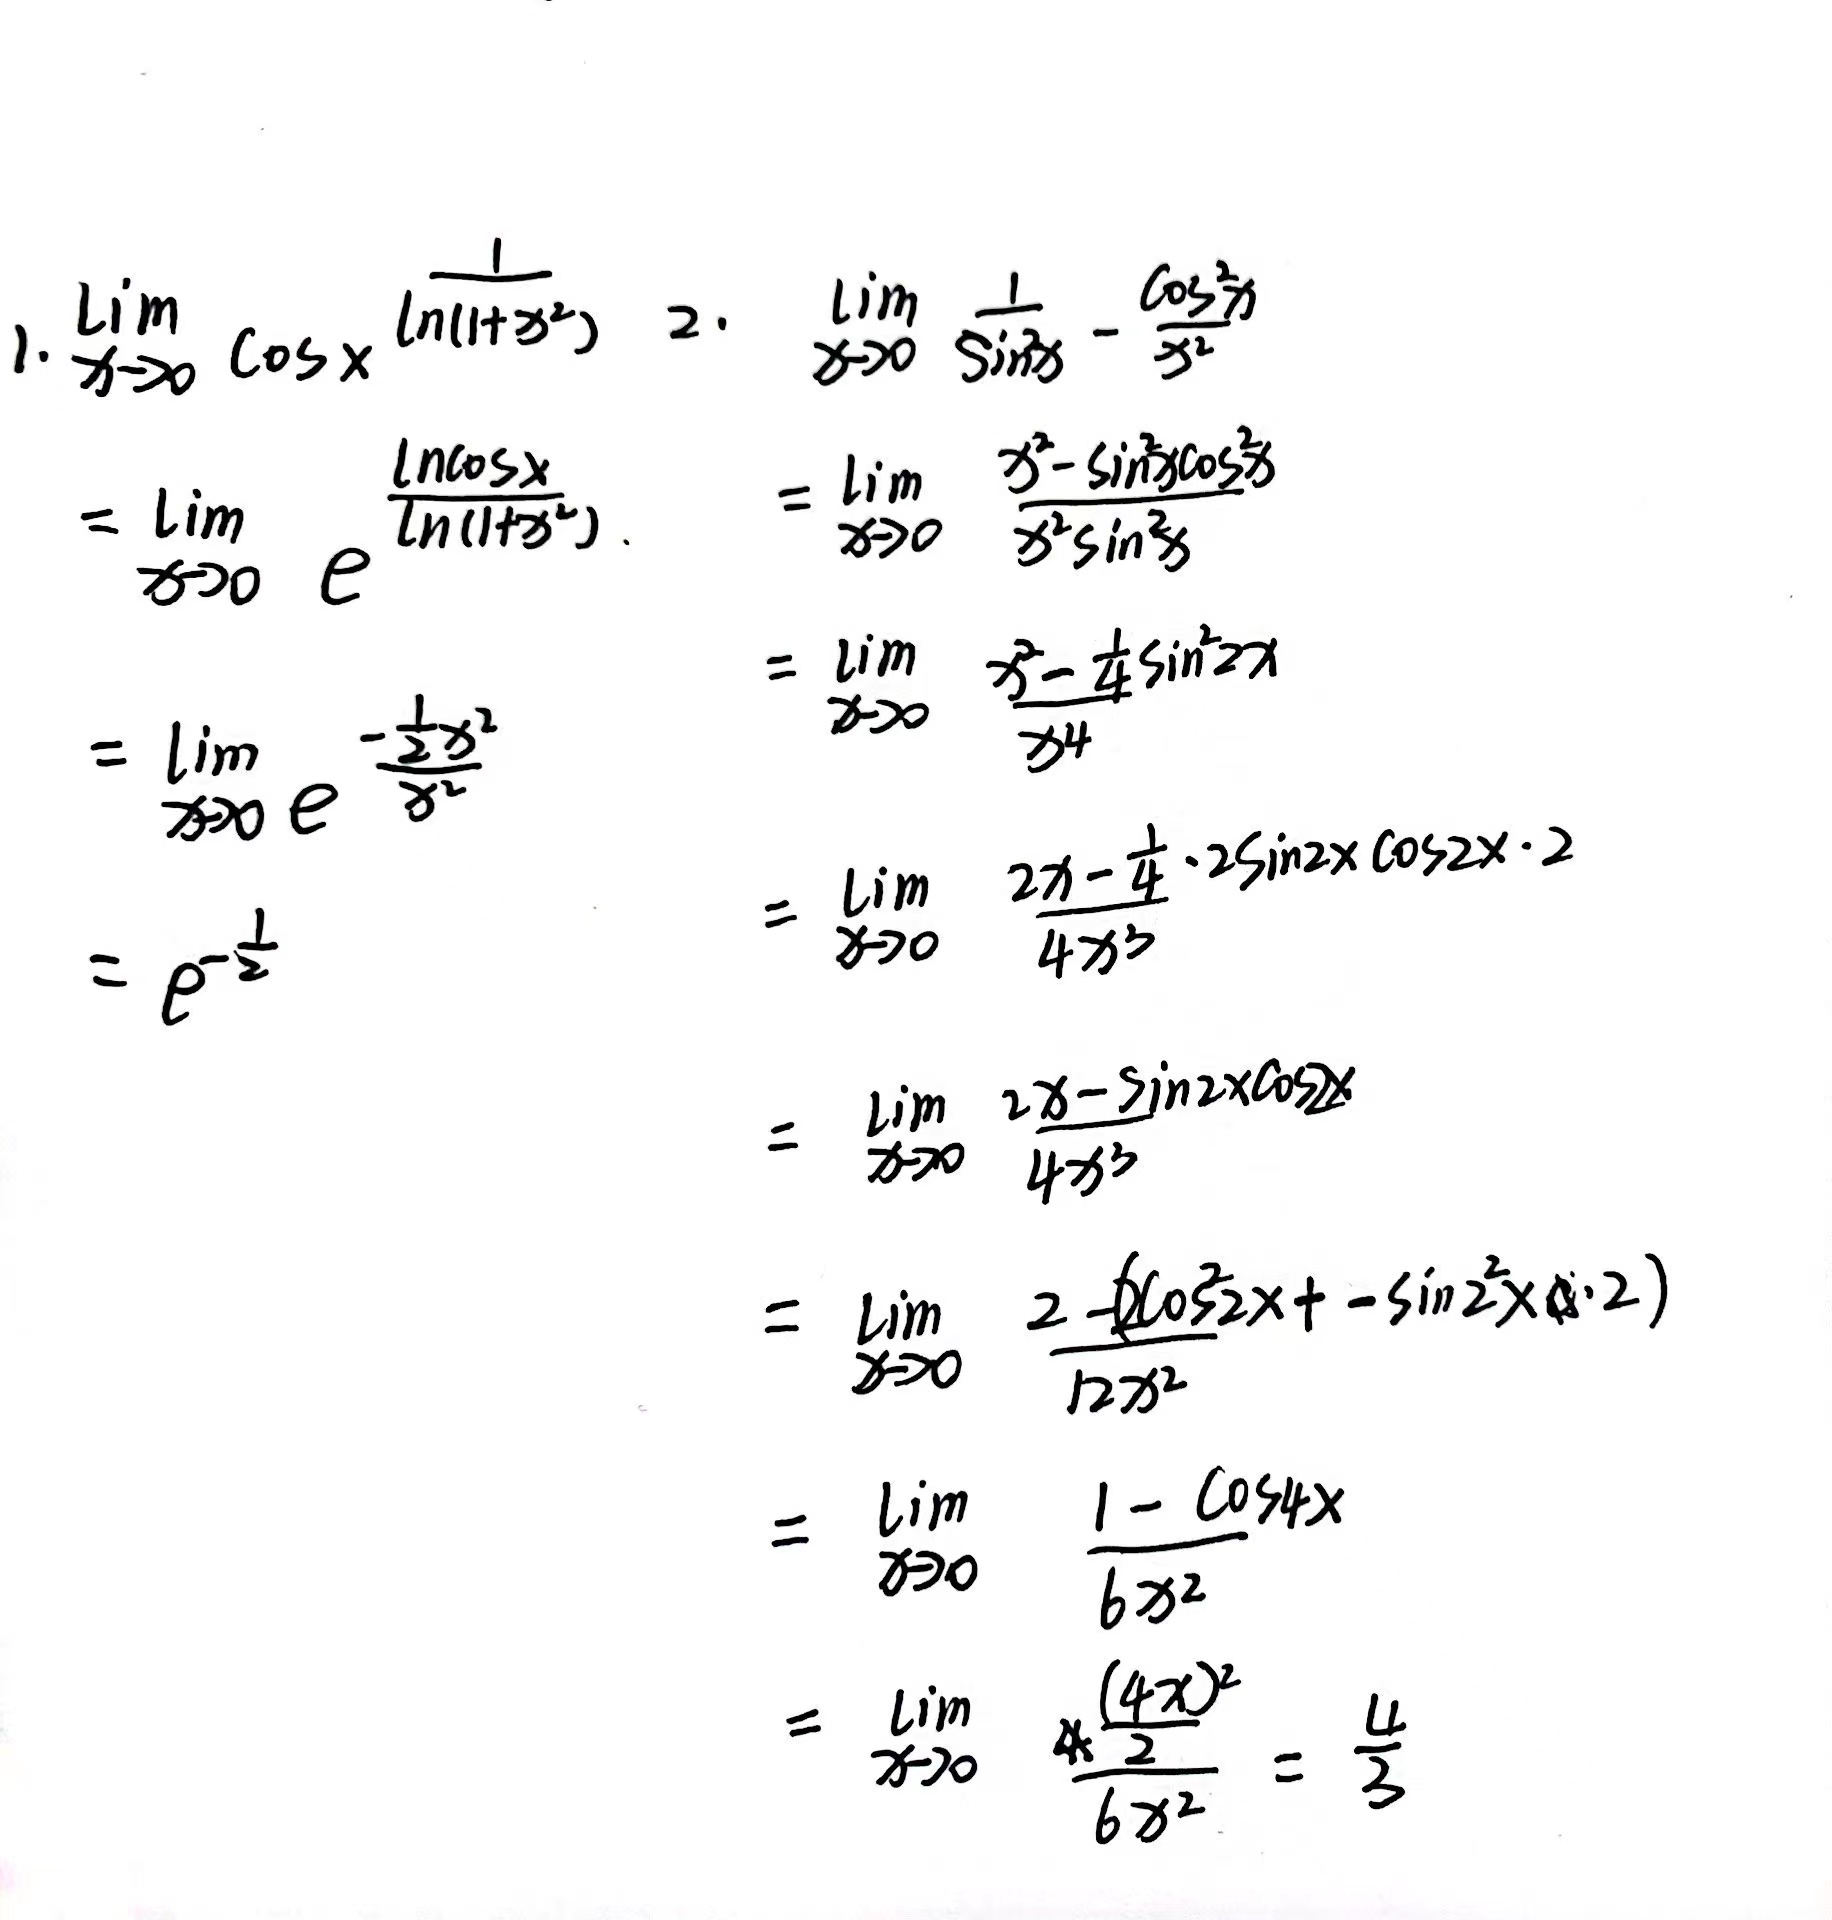 1. lim x→0 cosx^(1/ln(1+x²))
= lim x→0 e^(lncosx/ln(1+x²)).
= lim x→0 e^(-½x²/x²)
= e^(-½)
2. lim x→0 1/sin²x - cos²x/x²
= lim x→0 (x²-sin²xcos²x)/(x²sin²x)
= lim x→0 (x²-¼sin²2x)/x⁴
= lim x→0 (2x-¼·2sin2xcos2x·2)/4x³
= lim x→0 (2x-sin2xcos2x)/4x³
= lim x→0 (2-(2cos²2x+-sin2²x·2))/12x²
= lim x→0 (1-cos4x)/6x²
= lim x→0 ((4x)²/2)/6x² = 4/3